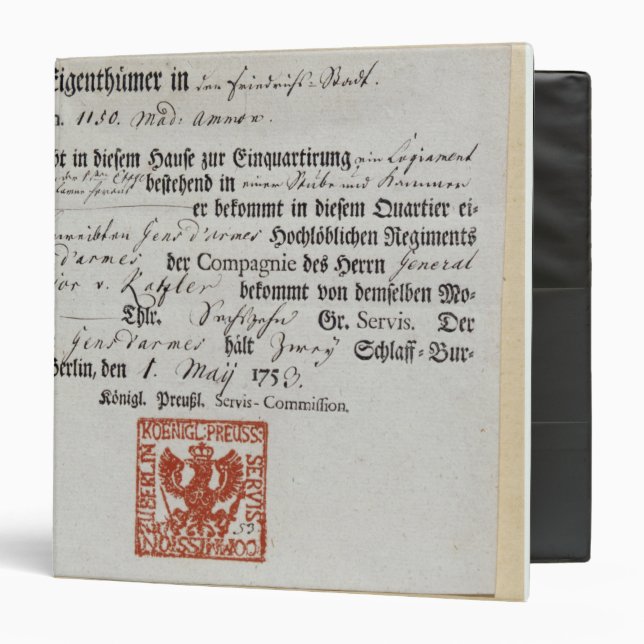 Eigenthümer in den Friedrichs-Stadt.
n. 1150. Mad: Ammon.
ht in diesem Hause zur Einquartirung ein Logiament
in der 1ten Etage
bestehend in einer Stube und Kammer
er bekommt in diesem Quartier ei-
weibten Gens d'armes Hochlöblichen Regiments
d'armes der Compagnie des Herrn General
jor v. Katzler bekommt von demselben Mo-
Thlr. Sechszehn Gr. Servis. Der
Gensdarmes hält Zwey Schlaff-Bur-
Berlin, den 1. Maÿ 1753.
Königl. Preußl. Servis-Commission.
KOENIGL·PREUSS:
SERVIS
COMMISSION
ZU BERLIN
R
53